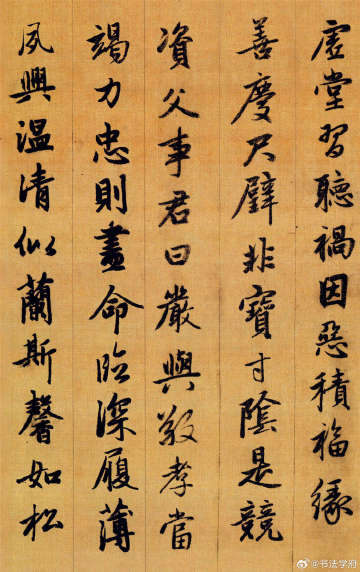 虛堂習聽禍因惡積福緣
善慶尺璧非寶寸陰是競
資父事君曰嚴與敬孝當
竭力忠則盡命臨深履薄
夙興温清似蘭斯馨如松
@书法学府